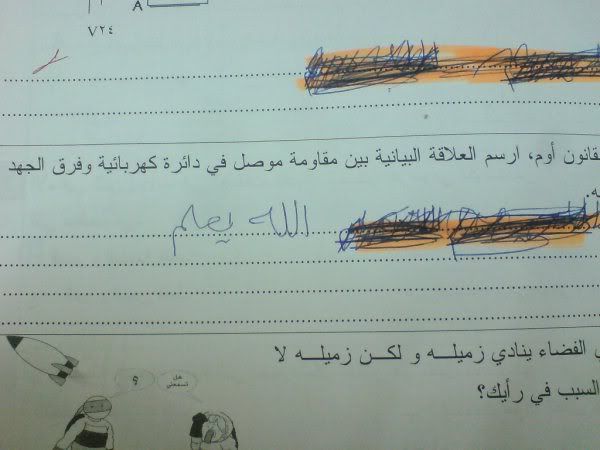 A
٢٤V
قانون أوم، ارسم العلاقة البيانية بين مقاومة موصل في دائرة كهربائية وفرق الجهد
الله يعلم
الفضاء ينادي زميله و لكن زميله لا
السبب في رأيك؟
هل تسمعني
؟